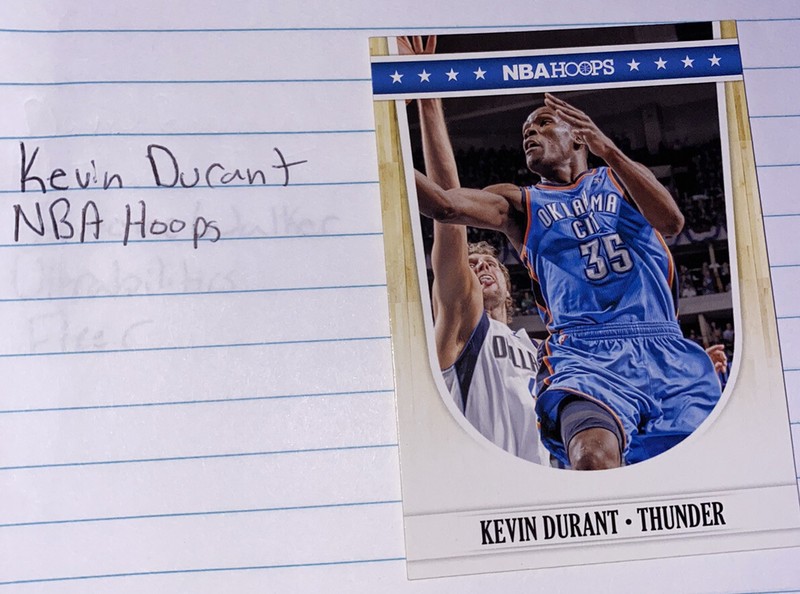 Kevin Durant
NBA Hoops
NBA HOOPS
OKLAHOMA
CITY
35
KEVIN DURANT • THUNDER